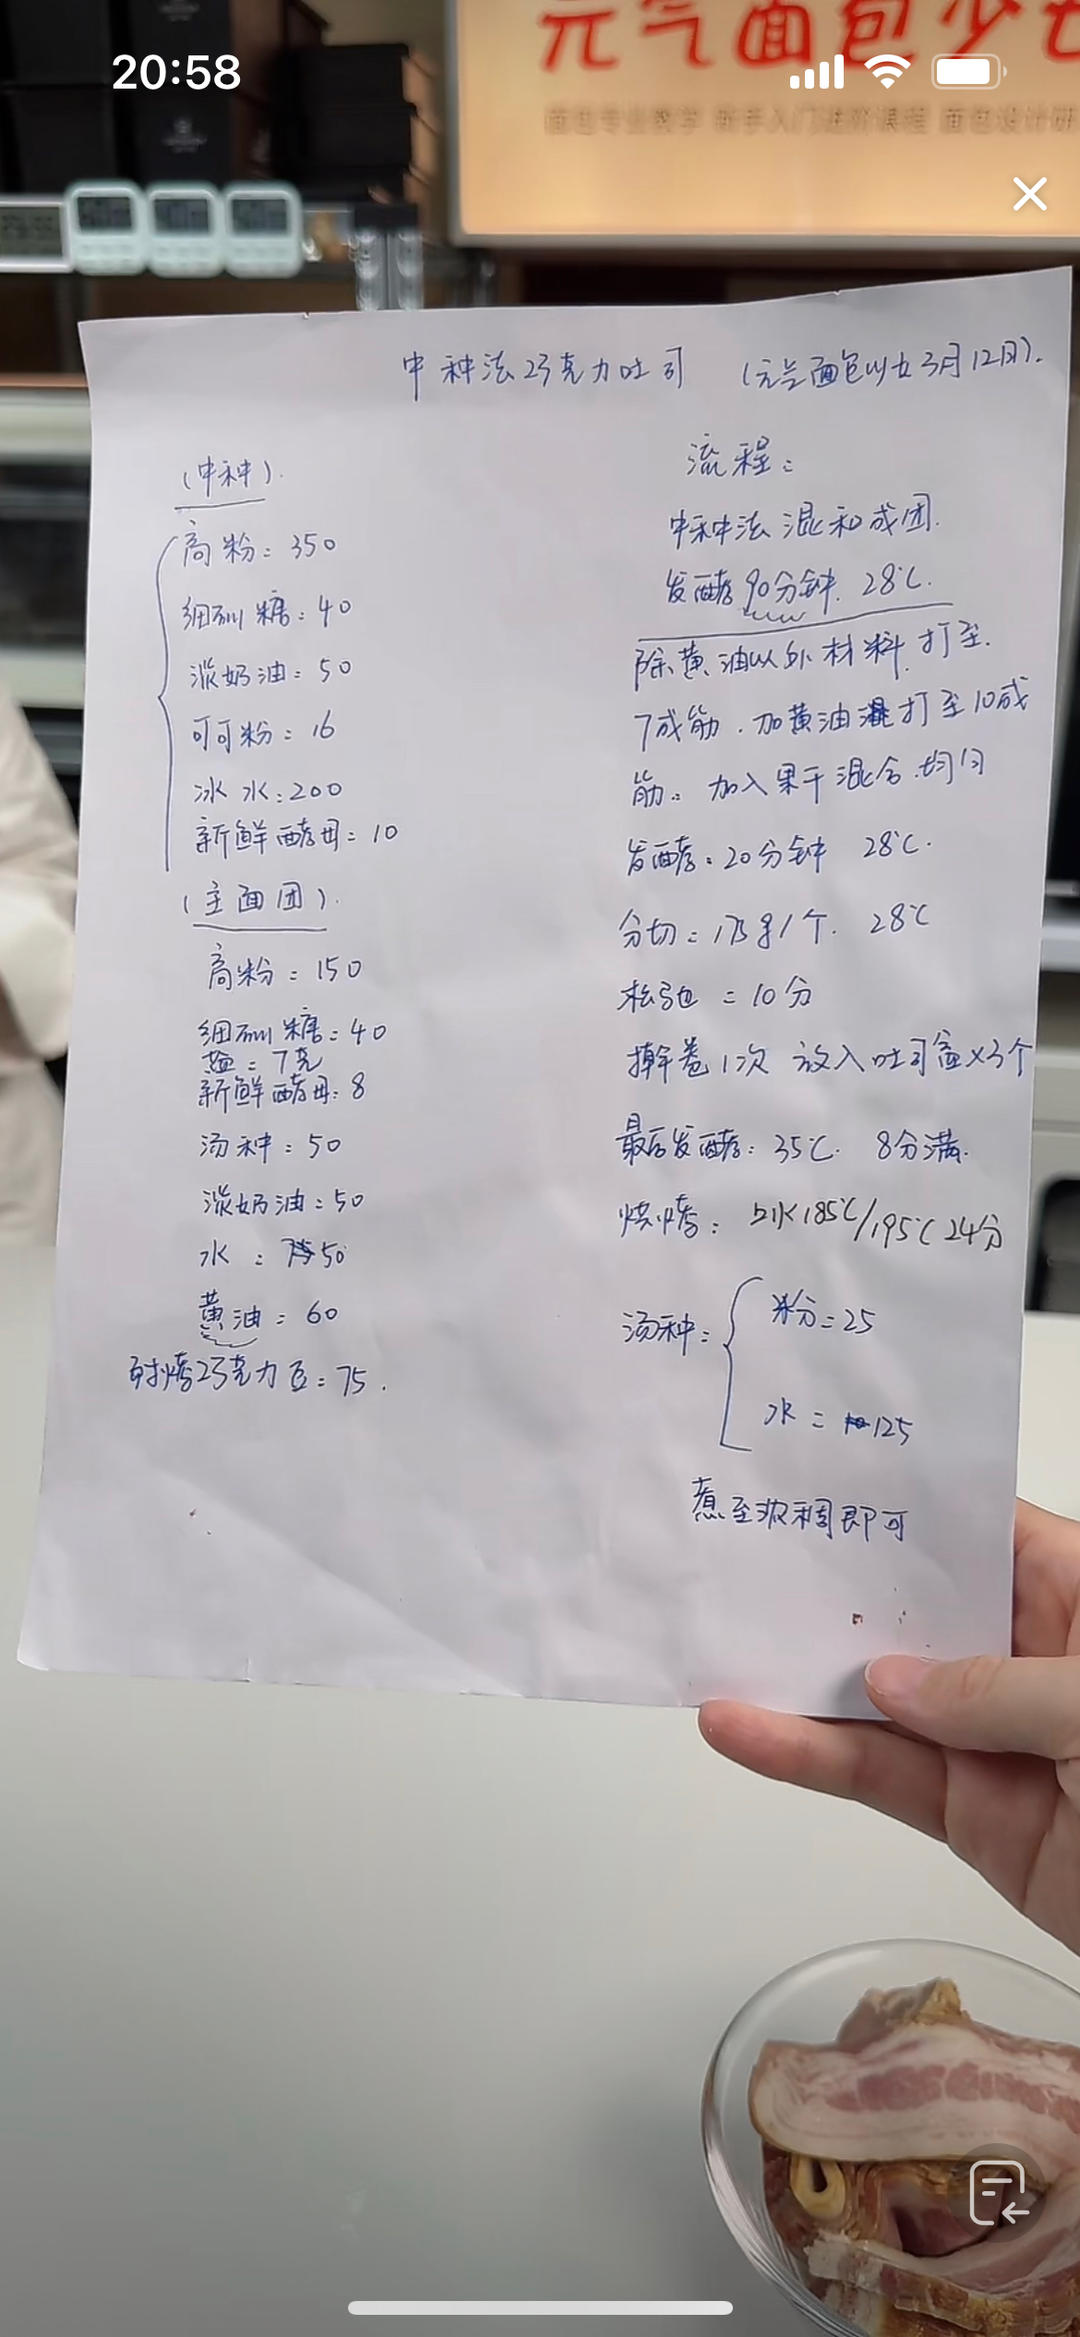 20:58
元气面包少女
面包专业教学 新手入门进阶课程 面包设计研
中种法巧克力吐司 (元气面包少女3月12日).
(中种).
高粉: 350
细砂糖: 40
淡奶油: 50
可可粉: 16
冰水: 200
新鲜酵母: 10
(主面团).
高粉: 150
细砂糖: 40
盐: 7克
新鲜酵母: 8
汤种: 50
淡奶油: 50
水: 50
黄油: 60
耐烤巧克力豆: 75.
流程:
中种法混和成团.
发酵90分钟. 28℃.
除黄油以外材料.打至.
7成筋.加黄油打至10成
筋. 加入果干混合.均匀
发酵: 20分钟 28℃.
分切: 175g/个. 28℃
松弛: 10分
擀卷1次 放入吐司盒×3个
最后发酵: 35℃. 8分满.
烘烤: 185℃/195℃ 24分
汤种:
粉: 25
水: 125
煮至浓稠即可